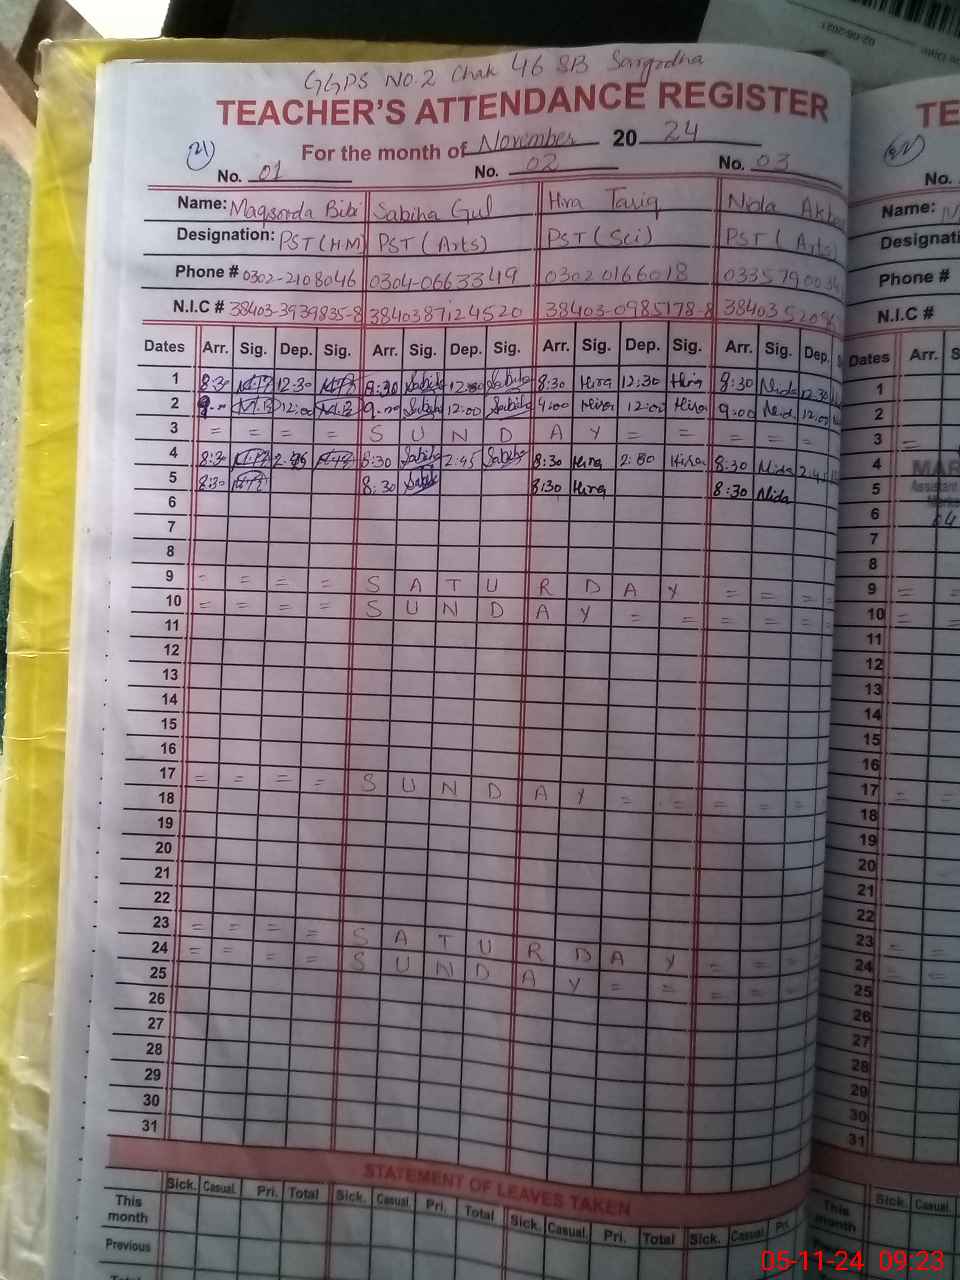 02-06-2021
GGPS NO.2 Chak 46 SB Sargodha
TEACHER'S ATTENDANCE REGISTER
For the month of November 20 24
21
No. 01 No. 02 No. 03
Name: Maqsooda Bibi Sabiha Gul Hira Tariq Nida
Designation: PST (H.M) PST (Arts) PST (Sci) PST (Arts)
Phone # 0302-2108046 0304-0663349 03020166018
N.I.C # 38403-3939835-8 3840387124520 38403-0985178-8
Dates Arr. Sig. Dep. Sig. Arr. Sig. Dep. Sig. Arr. Sig. Dep. Sig. Arr. Sig. Dep.
1 8:30 M.B 12:30 M.B 8:30 Sabiha 12:30 Sabiha 8:30 Hira 12:30 Hira 8:30 Nida 12:30
2 9:00 M.B 12:00 M.B 9:00 Sabiha 12:00 Sabiha 9:00 Hira 12:00 Hira 9:00 Nida 12:00
3 = = = = S U N D A Y = = = = =
4 8:30 M.B 2:45 M.B 8:30 Sabiha 2:45 Sabiha 8:30 Hira Hira 8:30 Nida 2:45
5 8:30 M.B 8:30 Sabiha 8:30 Hira 8:30 Nida
6
7
8
9 = = = = S A T U R D A Y = = = =
10 = = = = S U N D A Y = = = = =
11
12
13
14
15
16
17 = = = = S U N D A Y = = = = =
18
19
20
21
22
23 = = = = S A T U R D A Y = = =
24 = = = = S U N D A Y = = = = =
25
26
27
28
29
30
31
STATEMENT OF LEAVES TAKEN
Sick. Casual. Pri. Total Sick. Casual. Pri. Total Sick. Casual. Pri. Total Sick. Casual. Pri.
This month
Previous
TE
No.
Name:
Phone #
N.I.C #
Dates Arr.
1
2
3 =
4
5
6
7
8
9 = =
10 = =
11
12
13
14
15
16
17 = =
18
19
20
21
22
23 = =
24 = =
25
26
27
28
29
30
31
Sick. Casual.
This month
05-11-24 09:23